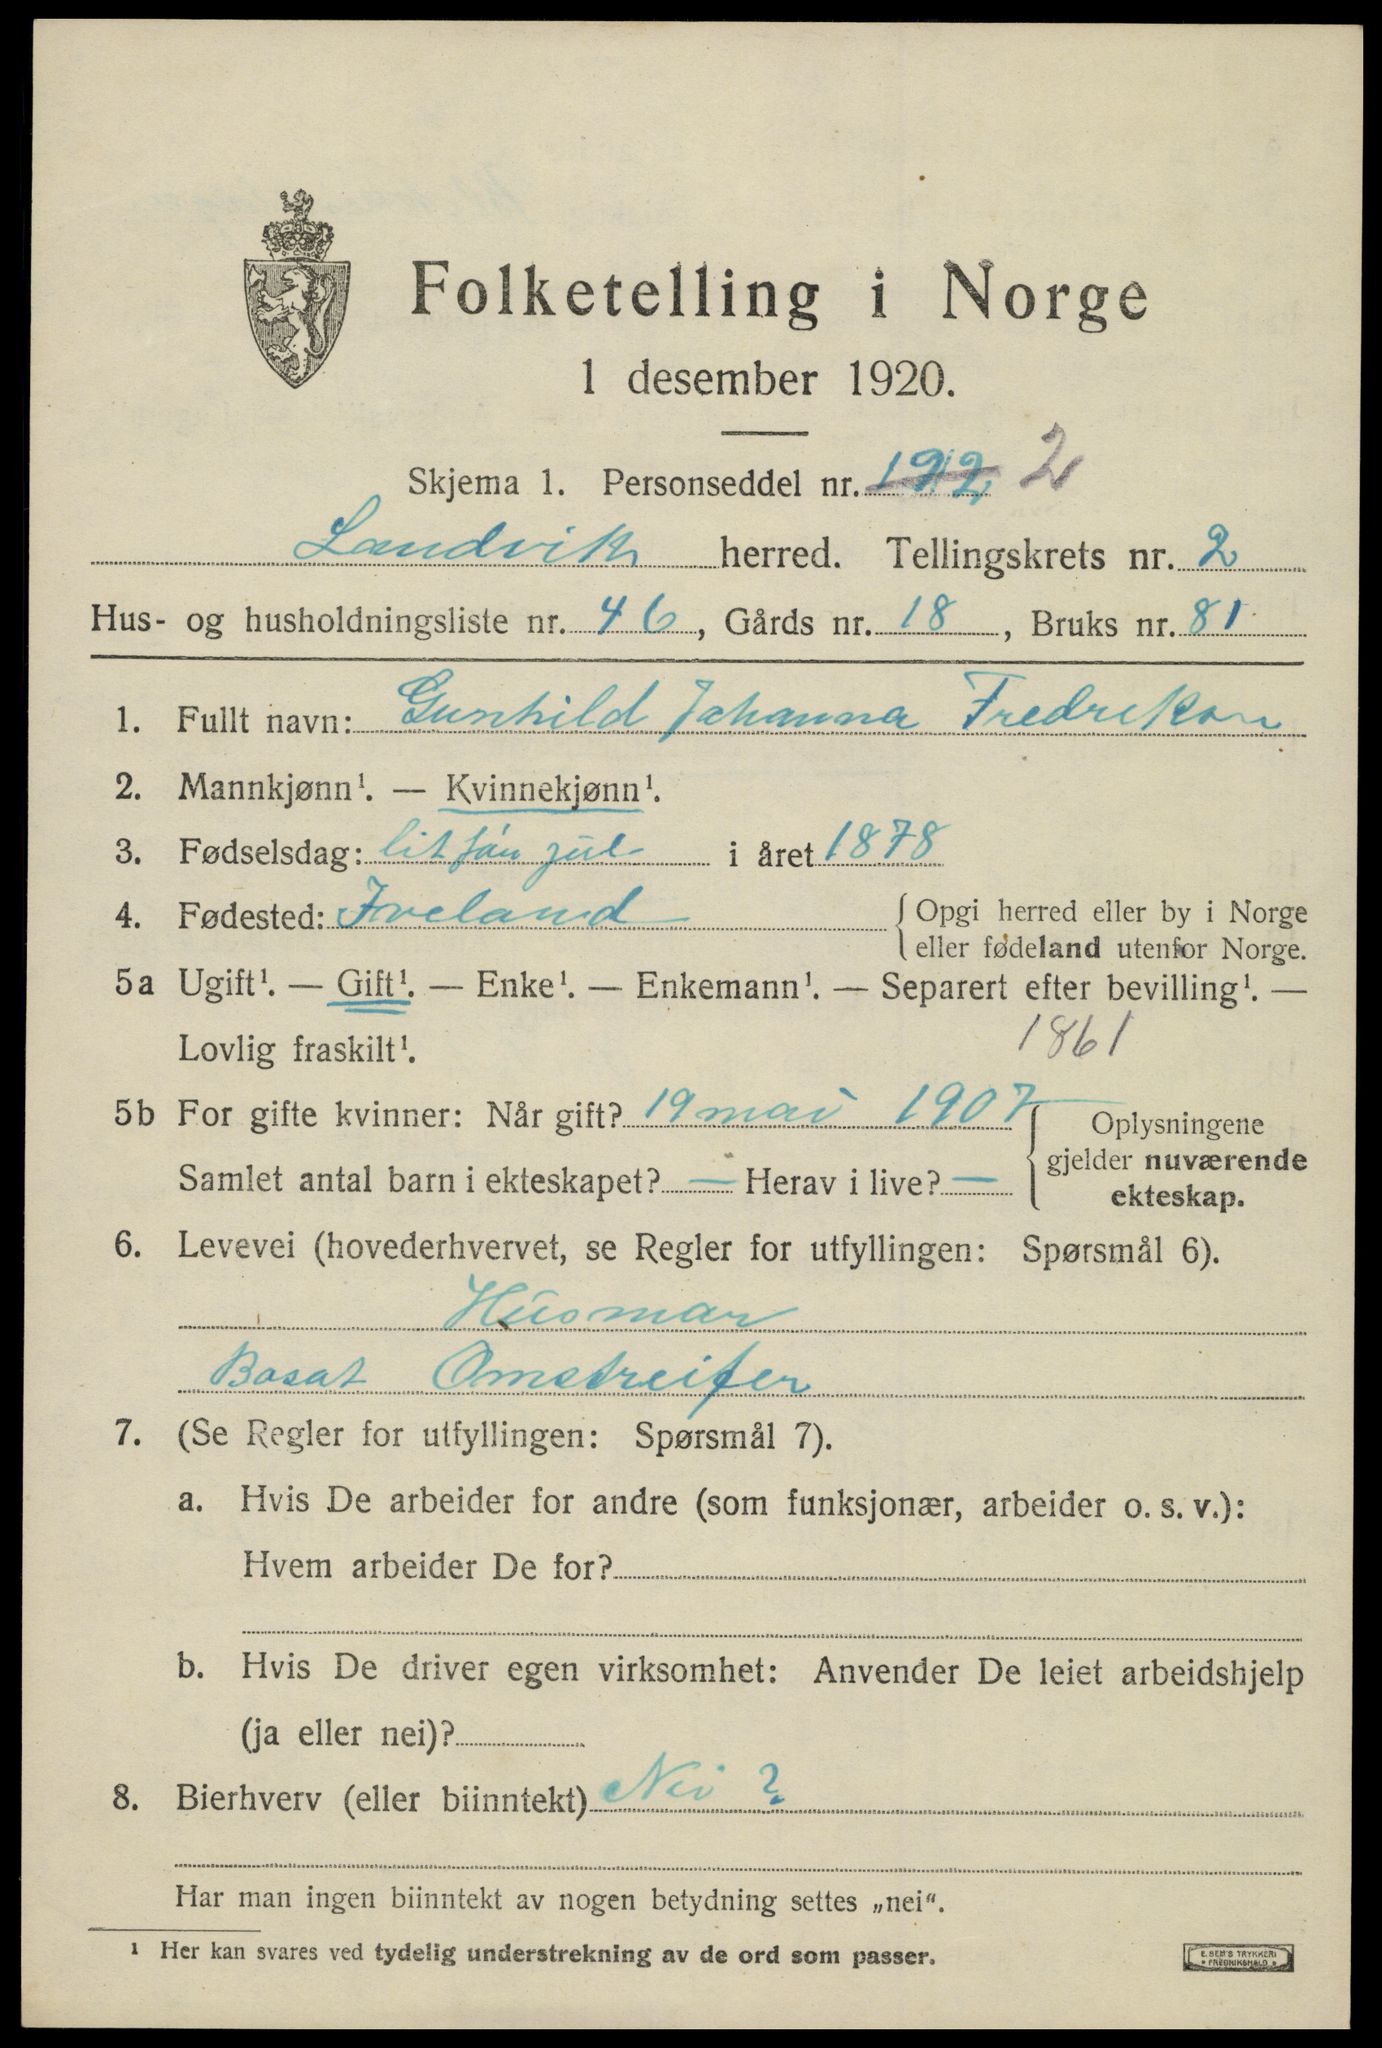 Folketelling i Norge
1 desember 1920.
Skjema 1. Personseddel nr. 192 2
Landvik herred. Tellingskrets nr. 2
Hus- og husholdningsliste nr. 46, Gårds nr. 18, Bruks nr. 81
1. Fullt navn: Gunhild Johanna Fredrikson
2. Mannkjønn¹. — Kvinnekjønn¹.
3. Fødselsdag: lit før jul i året 1878
4. Fødested: Iveland { Opgi herred eller by i Norge
eller fødeland utenfor Norge.
5a Ugift¹. — Gift¹. — Enke¹. — Enkemann¹. — Separert efter bevilling¹. —
Lovlig fraskilt¹. 1861
5b For gifte kvinner: Når gift? 19 mai 1907 { Oplysningene
gjelder nuværende
ekteskap.
Samlet antal barn i ekteskapet? — Herav i live? —
6. Levevei (hovederhvervet, se Regler for utfyllingen: Spørsmål 6).
Husmar
Bosat Omstreifer
7. (Se Regler for utfyllingen: Spørsmål 7).
a. Hvis De arbeider for andre (som funksjonær, arbeider o. s. v.):
Hvem arbeider De for?
b. Hvis De driver egen virksomhet: Anvender De leiet arbeidshjelp
(ja eller nei)?
8. Bierhverv (eller biinntekt) Nei ?
Har man ingen biinntekt av nogen betydning settes „nei“.
¹ Her kan svares ved tydelig understrekning av de ord som passer.
E. SEM'S TRYKKERI
FREDRIKSHALD